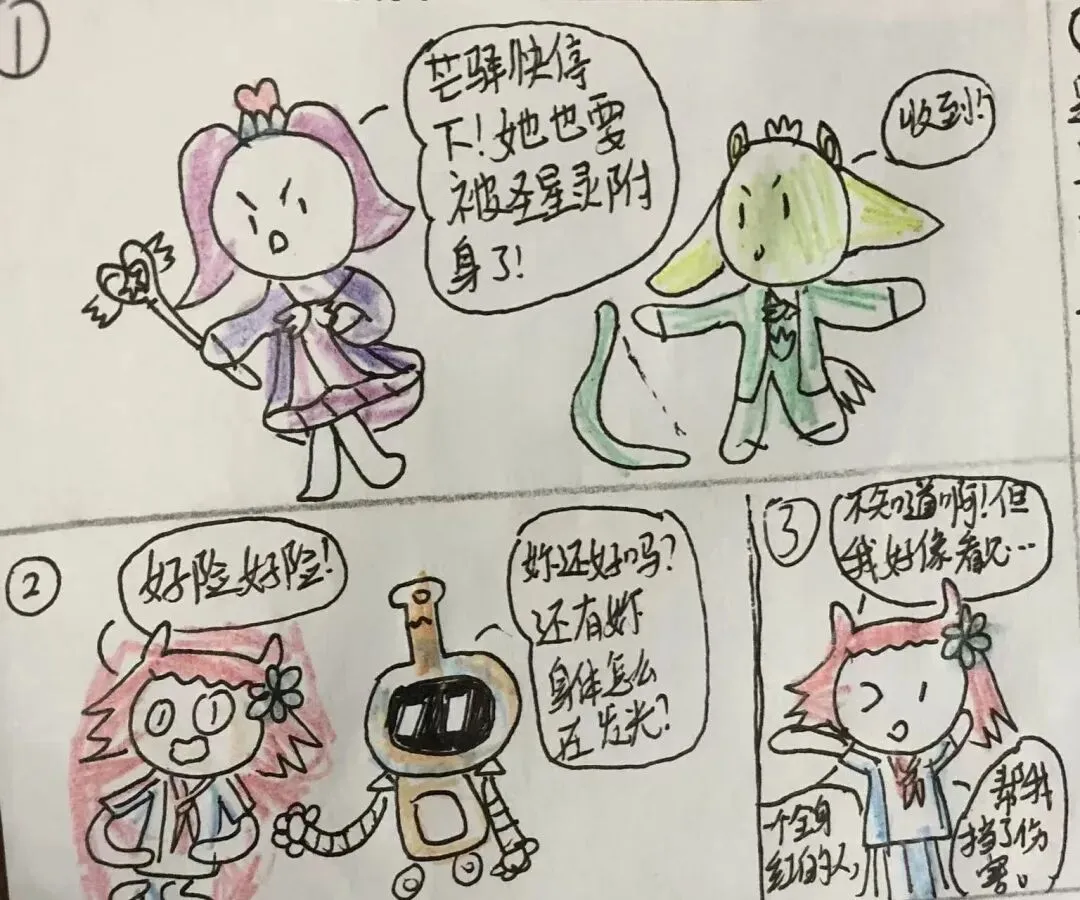 ①
芒驿快停
下!她也要
被圣星灵附
身了!
收到!
②
好险好险!
妳还好吗?
还有妳
身体怎么
在发光?
③
不知道啊!但
我好像看见…
一个全身
红的人,
帮我
挡了伤
害。